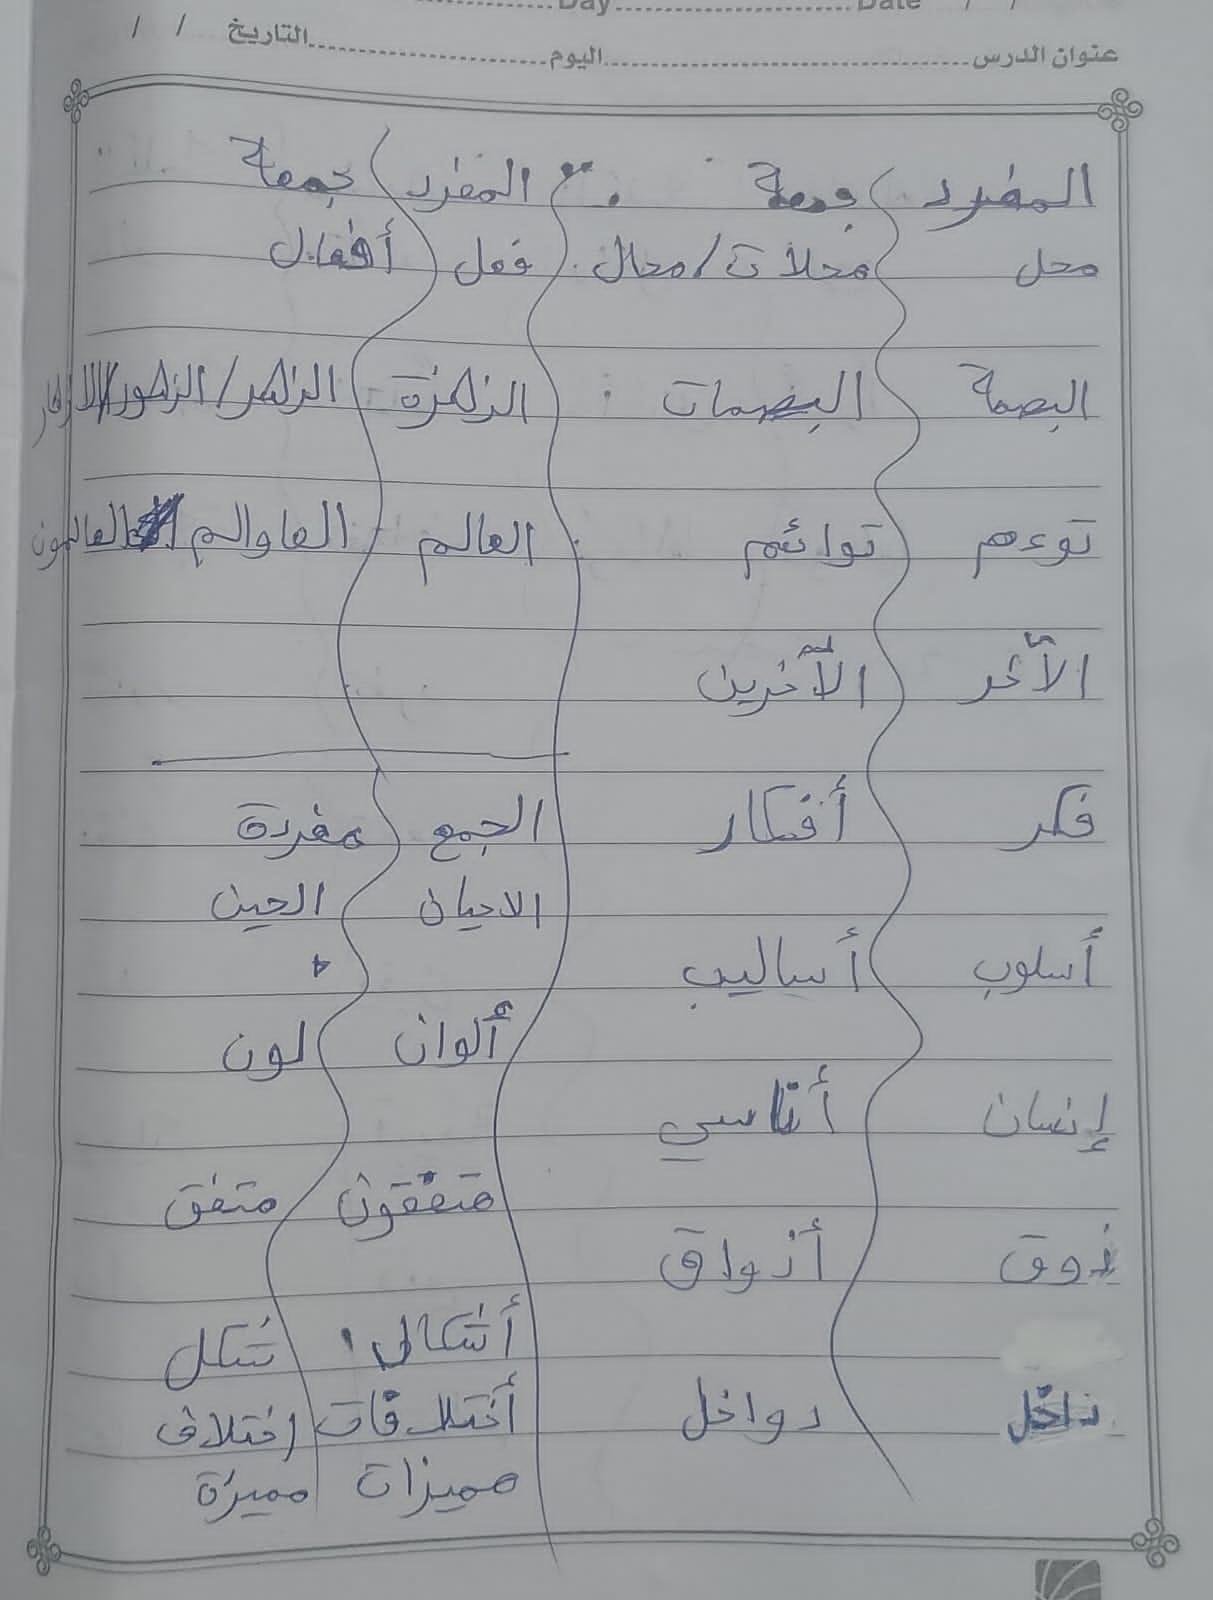 Day Date / /
عنوان الدرس اليوم التاريخ / /
المفرد جمعة المفرد جمعة
محل محلات/محال فعل أفعال
البصمة البصمات الزهرة الزهر/الزهور/الازهار
توءم توائم العالم العاوالم العالمون
الآخر الآخرين
فكر أفكار الجمع مفردة
الاحيان الحين
أسلوب أساليب
ألوان لون
إنسان أناسي
متفقون متفق
ذوق أذواق
أشكال شكل
داخل دواخل أختلافات اختلاف
مميزات مميزة